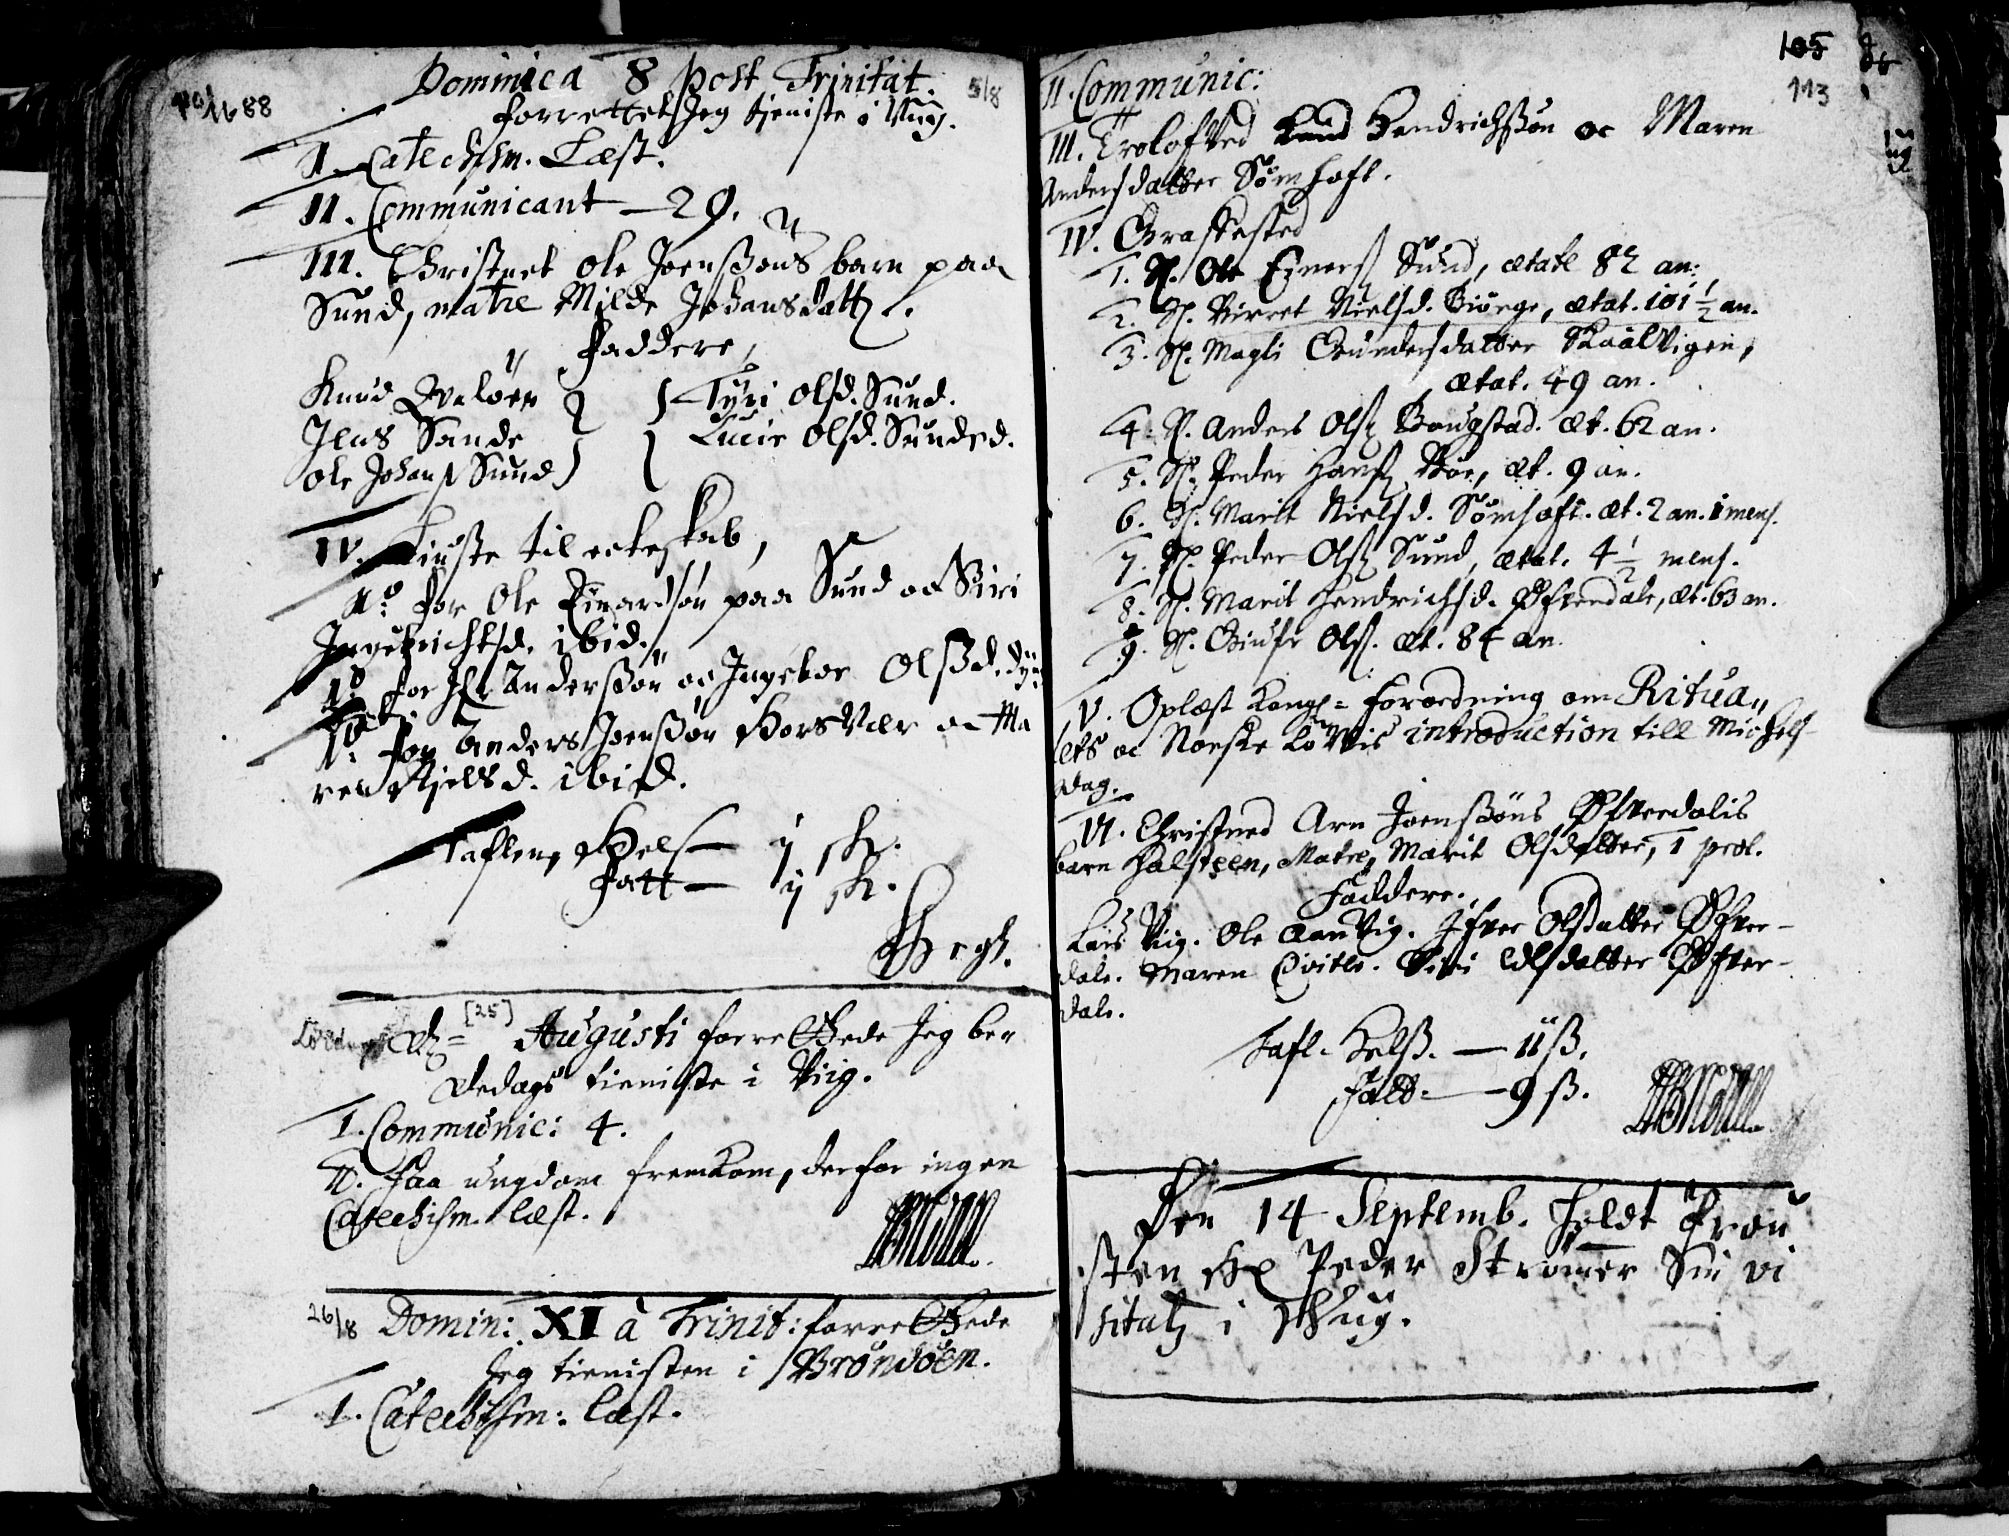 1688
Dominica 8 post Trinitat. 5/8
forrettet Jeg tieniste i Viig.
I. Catechism. Læst.
II. Communicant — 29.
III. Christnet Ole Joenssøns barn paa
Sund, matre Milde Johansdatt.
Faddere,
Knud
Jens Sande
Ole Johans Sund
Tyri Olsd. Sund.
Lucie Olsd. Sund
IV. til ecteskab,
1º for Ole Einardsøn paa Sund oc Siri
Ingebrichtsd. ibid.
for Anderssøn oc Ingebor Olssd.
for Anders Joenssøn Horsvær oc Ma
ren Kjelsd. ibid.
Taflen, Hels — ij sk.
Fatt — ij sk.
Løverdag [25] Augusti forrettede Jeg be
dedags tieniste i Viig.
I. Communic: 4.
II. Faa ungdom fremkom, derfor ingen
Catechism. læst.
26/8 Domin: XI à Trinit: forrettede
Jeg tienisten i Brønøen.
I. Catechism: læst.
105
113
II. Communic:
III. Trolofved Hendrichssøn oc Maren
Andersdatter Sømhoft.
IV. Graffested
1. S. Ole Einers Sund, ætate 82 an:
2. S. Birret Nielsd. Biørge, ætat. 101 1/2 an.
3. S. Magli Gundersdatter Skaalvigen,
ætat. 49 an.
4. S. Anders Ols Bougstad. æt. 62 an.
5. S. Peder Hans Bøe, æt. 9 an.
6. S. Marit Nielsd. Sømhoft. æt. 2 an. 1 mens.
7. S. Peder Ols Sund, ætat. 4 1/2 mens.
8. S. Marit Hendrichsd. Øfverdale, æt. 63 an.
9. S. Ols. æt. 84 an.
V. Oplæst Kongl= Forordning om Ritua„
lets oc Norske Lovis introduction till Michels
dag.
VI. Christned Arn Joenssøns Øfverdalis
barn Halsteen, Matre, Marit Olsdatter, 1 prol.
Faddere.
Lars Viig. Ole Aanvig. Olsdatter Øfver-
dale. Maren Siri Olsdatter Øfver-
dale.
Tafl. Helss. — 11 ß.
Fatt: — 9 ß.
Den 14 Septemb. holdt Prou
sten Hr Peder Strømer Sin vi
sitatz i Viig.